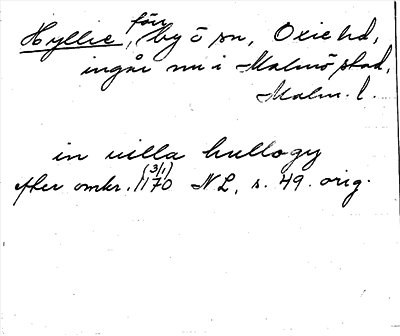 Hyllie, förr by o sn, Oxie hd,
ingår nu i Malmö stad,
Malm. l.
in villa hullogy
efter omkr. 1170 (3/1) NL, s. 49. orig.